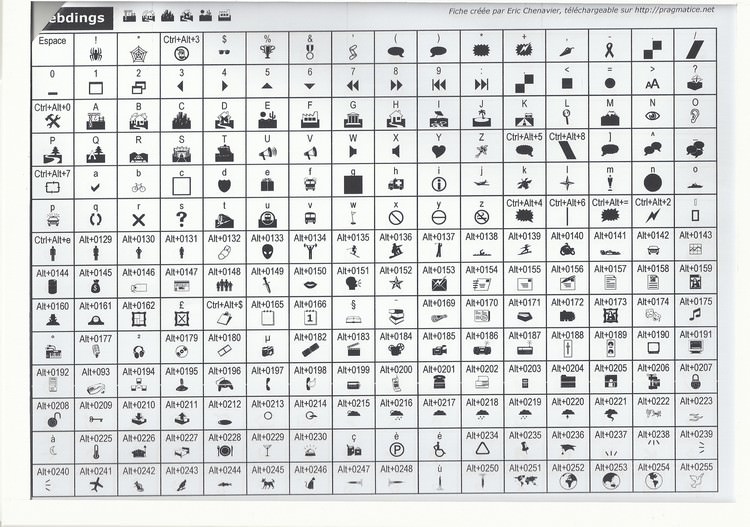 ebdings
Fiche créée par Eric Chenavier, téléchargeable sur http://pragmatice.net
Espace ! " Ctrl+Alt+3 $ % & ' ( ) * + , - . /
0 1 2 3 4 5 6 7 8 9 : ; < = > ?
Ctrl+Alt+0 A B C D E F G H I J K L M N O
P Q R S T U V W X Y Z Ctrl+Alt+5 Ctrl+Alt+8 ] ^ _
Ctrl+Alt+7 a b c d e f g h i j k l m n o
p q r s t u v w x y z Ctrl+Alt+4 Ctrl+Alt+6 Ctrl+Alt+= Ctrl+Alt+2
Ctrl+Alt+e Alt+0129 Alt+0130 Alt+0131 Alt+0132 Alt+0133 Alt+0134 Alt+0135 Alt+0136 Alt+0137 Alt+0138 Alt+0139 Alt+0140 Alt+0141 Alt+0142 Alt+0143
Alt+0144 Alt+0145 Alt+0146 Alt+0147 Alt+0148 Alt+0149 Alt+0150 Alt+0151 Alt+0152 Alt+0153 Alt+0154 Alt+0155 Alt+0156 Alt+0157 Alt+0158 Alt+0159
Alt+0160 Alt+0161 Alt+0162 £ Ctrl+Alt+$ Alt+0165 Alt+0166 § ¨ Alt+0169 Alt+0170 Alt+0171 Alt+0172 Alt+0173 Alt+0174 Alt+0175
° Alt+0177 ² Alt+0179 Alt+0180 µ Alt+0182 Alt+0183 Alt+0184 Alt+0185 Alt+0186 Alt+0187 Alt+0188 Alt+0189 Alt+0190 Alt+0191
Alt+0192 Alt+093 Alt+0194 Alt+0195 Alt+0196 Alt+0197 Alt+0198 Alt+0199 Alt+0200 Alt+0201 Alt+0202 Alt+0203 Alt+0204 Alt+0205 Alt+0206 Alt+0207
Alt+0208 Alt+0209 Alt+0210 Alt+0211 Alt+0212 Alt+0213 Alt+0214 Alt+0215 Alt+0216 Alt+0217 Alt+0218 Alt+0219 Alt+0220 Alt+0221 Alt+0222 Alt+0223
à Alt+0225 Alt+0226 Alt+0227 Alt+0228 Alt+0229 Alt+0230 ç è é Alt+0234 Alt+0235 Alt+0236 Alt+0237 Alt+0238 Alt+0239
Alt+0240 Alt+0241 Alt+0242 Alt+0243 Alt+0244 Alt+0245 Alt+0246 Alt+0247 Alt+0248 ù Alt+0250 Alt+0251 Alt+0252 Alt+0253 Alt+0254 Alt+0255